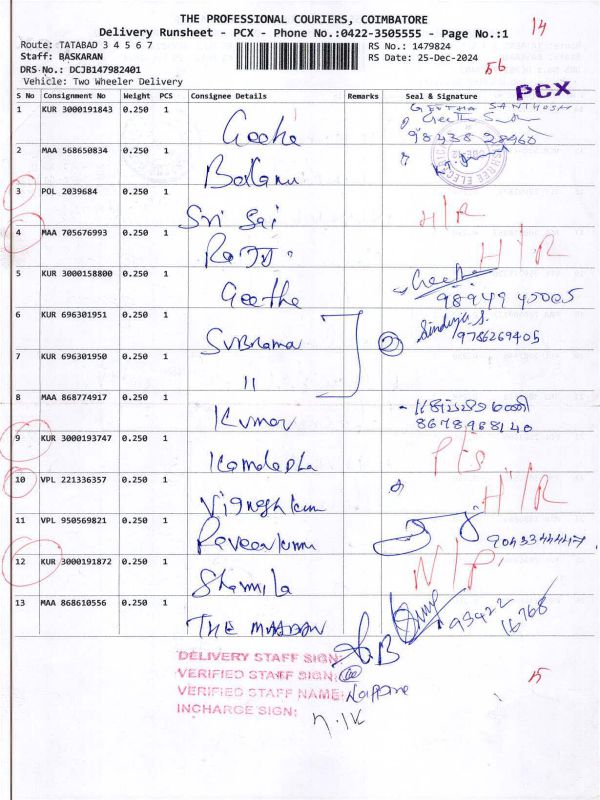 THE PROFESSIONAL COURIERS, COIMBATORE
14
Delivery Runsheet - PCX - Phone No.:0422-3505555 - Page No.:1
Route: TATABAD 3 4 5 6 7 RS No.: 1479824
Staff: BASKARAN RS Date: 25-Dec-2024 56
DRS No.: DCJB147982401
Vehicle: Two Wheeler Delivery
PCX
S No Consignment No Weight PCS Consignee Details Remarks Seal & Signature
1 KUR 3000191843 0.250 1 Geetha GEETHA SANTHOSH
98438 28465
2 MAA 568650834 0.250 1
3 POL 2039684 0.250 1 Sri Sai H/R
4 MAA 705676993 0.250 1 H/R
5 KUR 3000158800 0.250 1 Geetha Geetha
98949 45005
6 KUR 696301951 0.250 1 Subrama 2 Sindhya S.
9786269405
7 KUR 696301950 0.250 1 "
8 MAA 868774917 0.250 1 Kumar
8678968140
9 KUR 3000193747 0.250 1
10 VPL 221336357 0.250 1 Vignesh kum H/R
11 VPL 950569821 0.250 1 Paveenkumu 9043344447
12 KUR 3000191872 0.250 1 Sharmila N/P
13 MAA 868610556 0.250 1 THE 93422
16768
DELIVERY STAFF SIGN:
VERIFIED STAFF SIGN:
VERIFIED STAFF NAME:
INCHARGE SIGN: